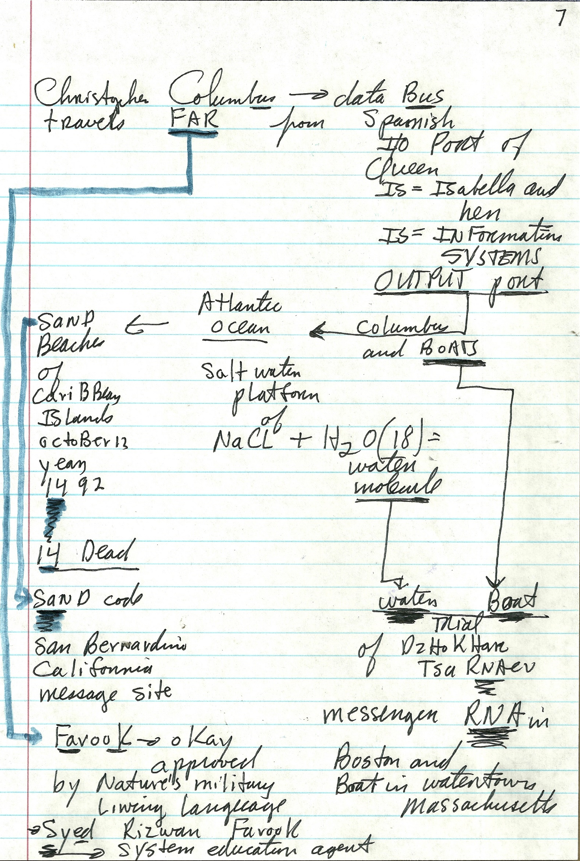 7
Christopher Columbus → data Bus
travels FAR from Spanish
I/O Port of
Queen
IS = Isabella and
her
IS = INFormation
SYSTEMS
OUTPUT port
Columbus
and BOATS
Atlantic
Ocean
Salt water
platform
of
NaCL + H2O(18) =
water
molecule
SAND
Beaches
of
CariBBean
ISLands
octoBer 12
year
1492
14 Dead
SanD code
San Bernardino
California
message site
water Boat
Trial
of DzHoKHar
Tsa RNAev
messenger RNA in
Boston and
Boat in watertown
Massachusetts
Farook → okay
approved
by Nature's military
Living Language
→ Syed Rizwan Farook
→ System education agent